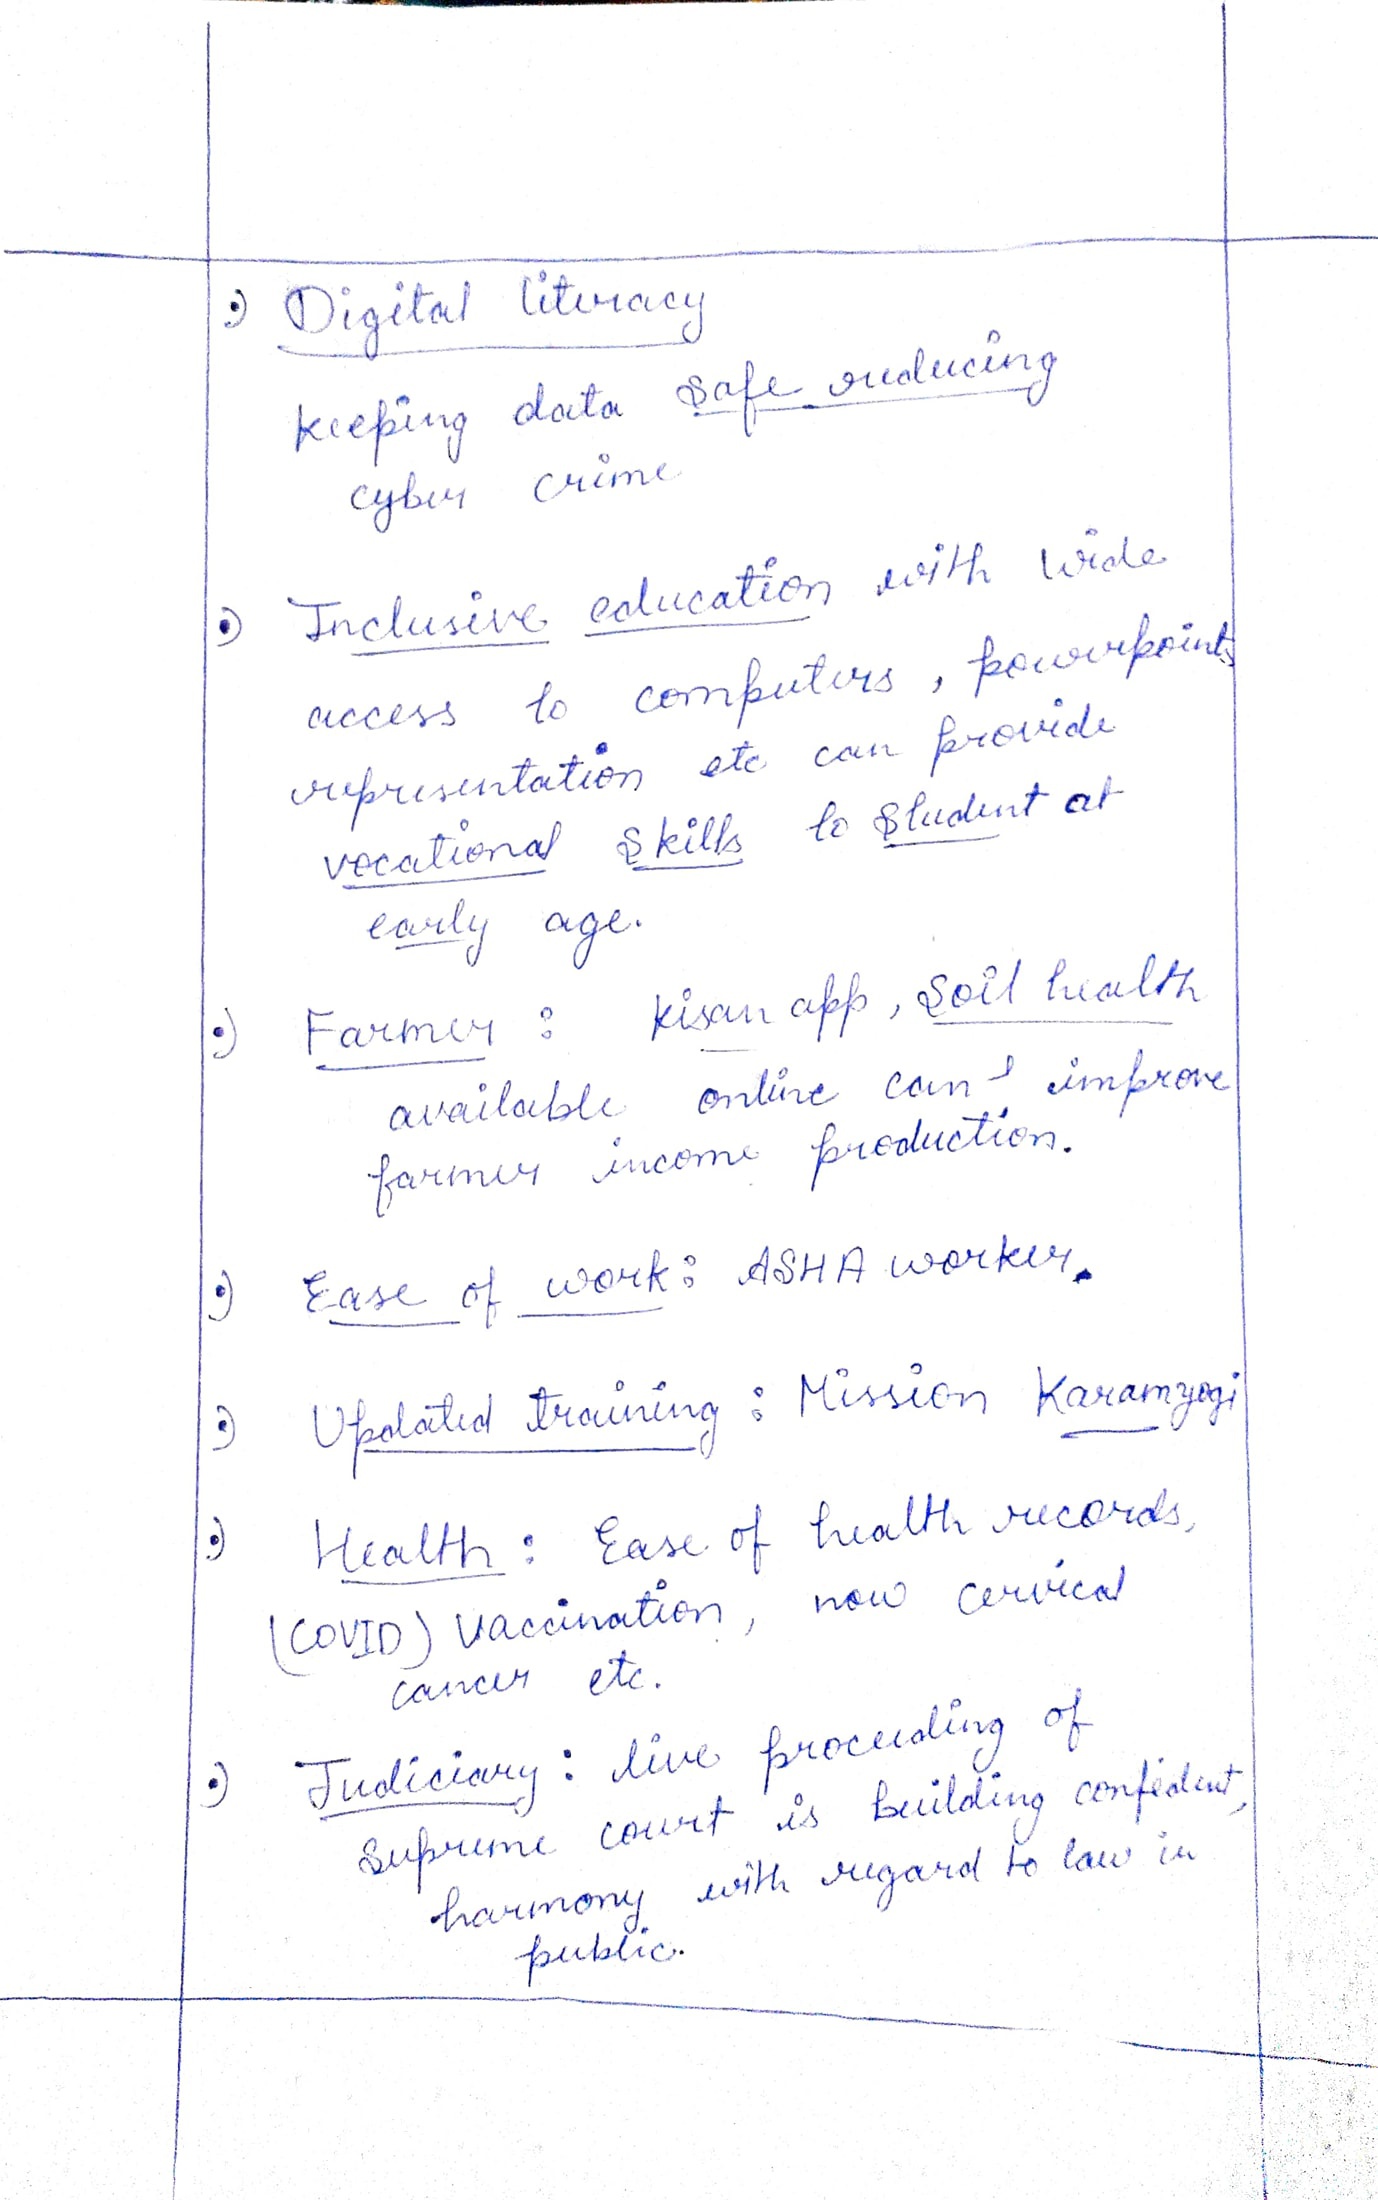 •) Digital literacy
keeping data safe reducing
cyber crime
•) Inclusive education with wide
access to computers, powerpoints
representation etc can provide
vocational skills to student at
early age.
•) Farmer : Kisan app, Soil health
available online can improve
farmer income production.
•) Ease of work : ASHA worker.
•) Updated training : Mission Karamyogi
•) Health : Ease of health records,
(COVID) vaccination, now cervical
cancer etc.
•) Judiciary : live proceeding of
Supreme court is building confident,
harmony with regard to law in
public.